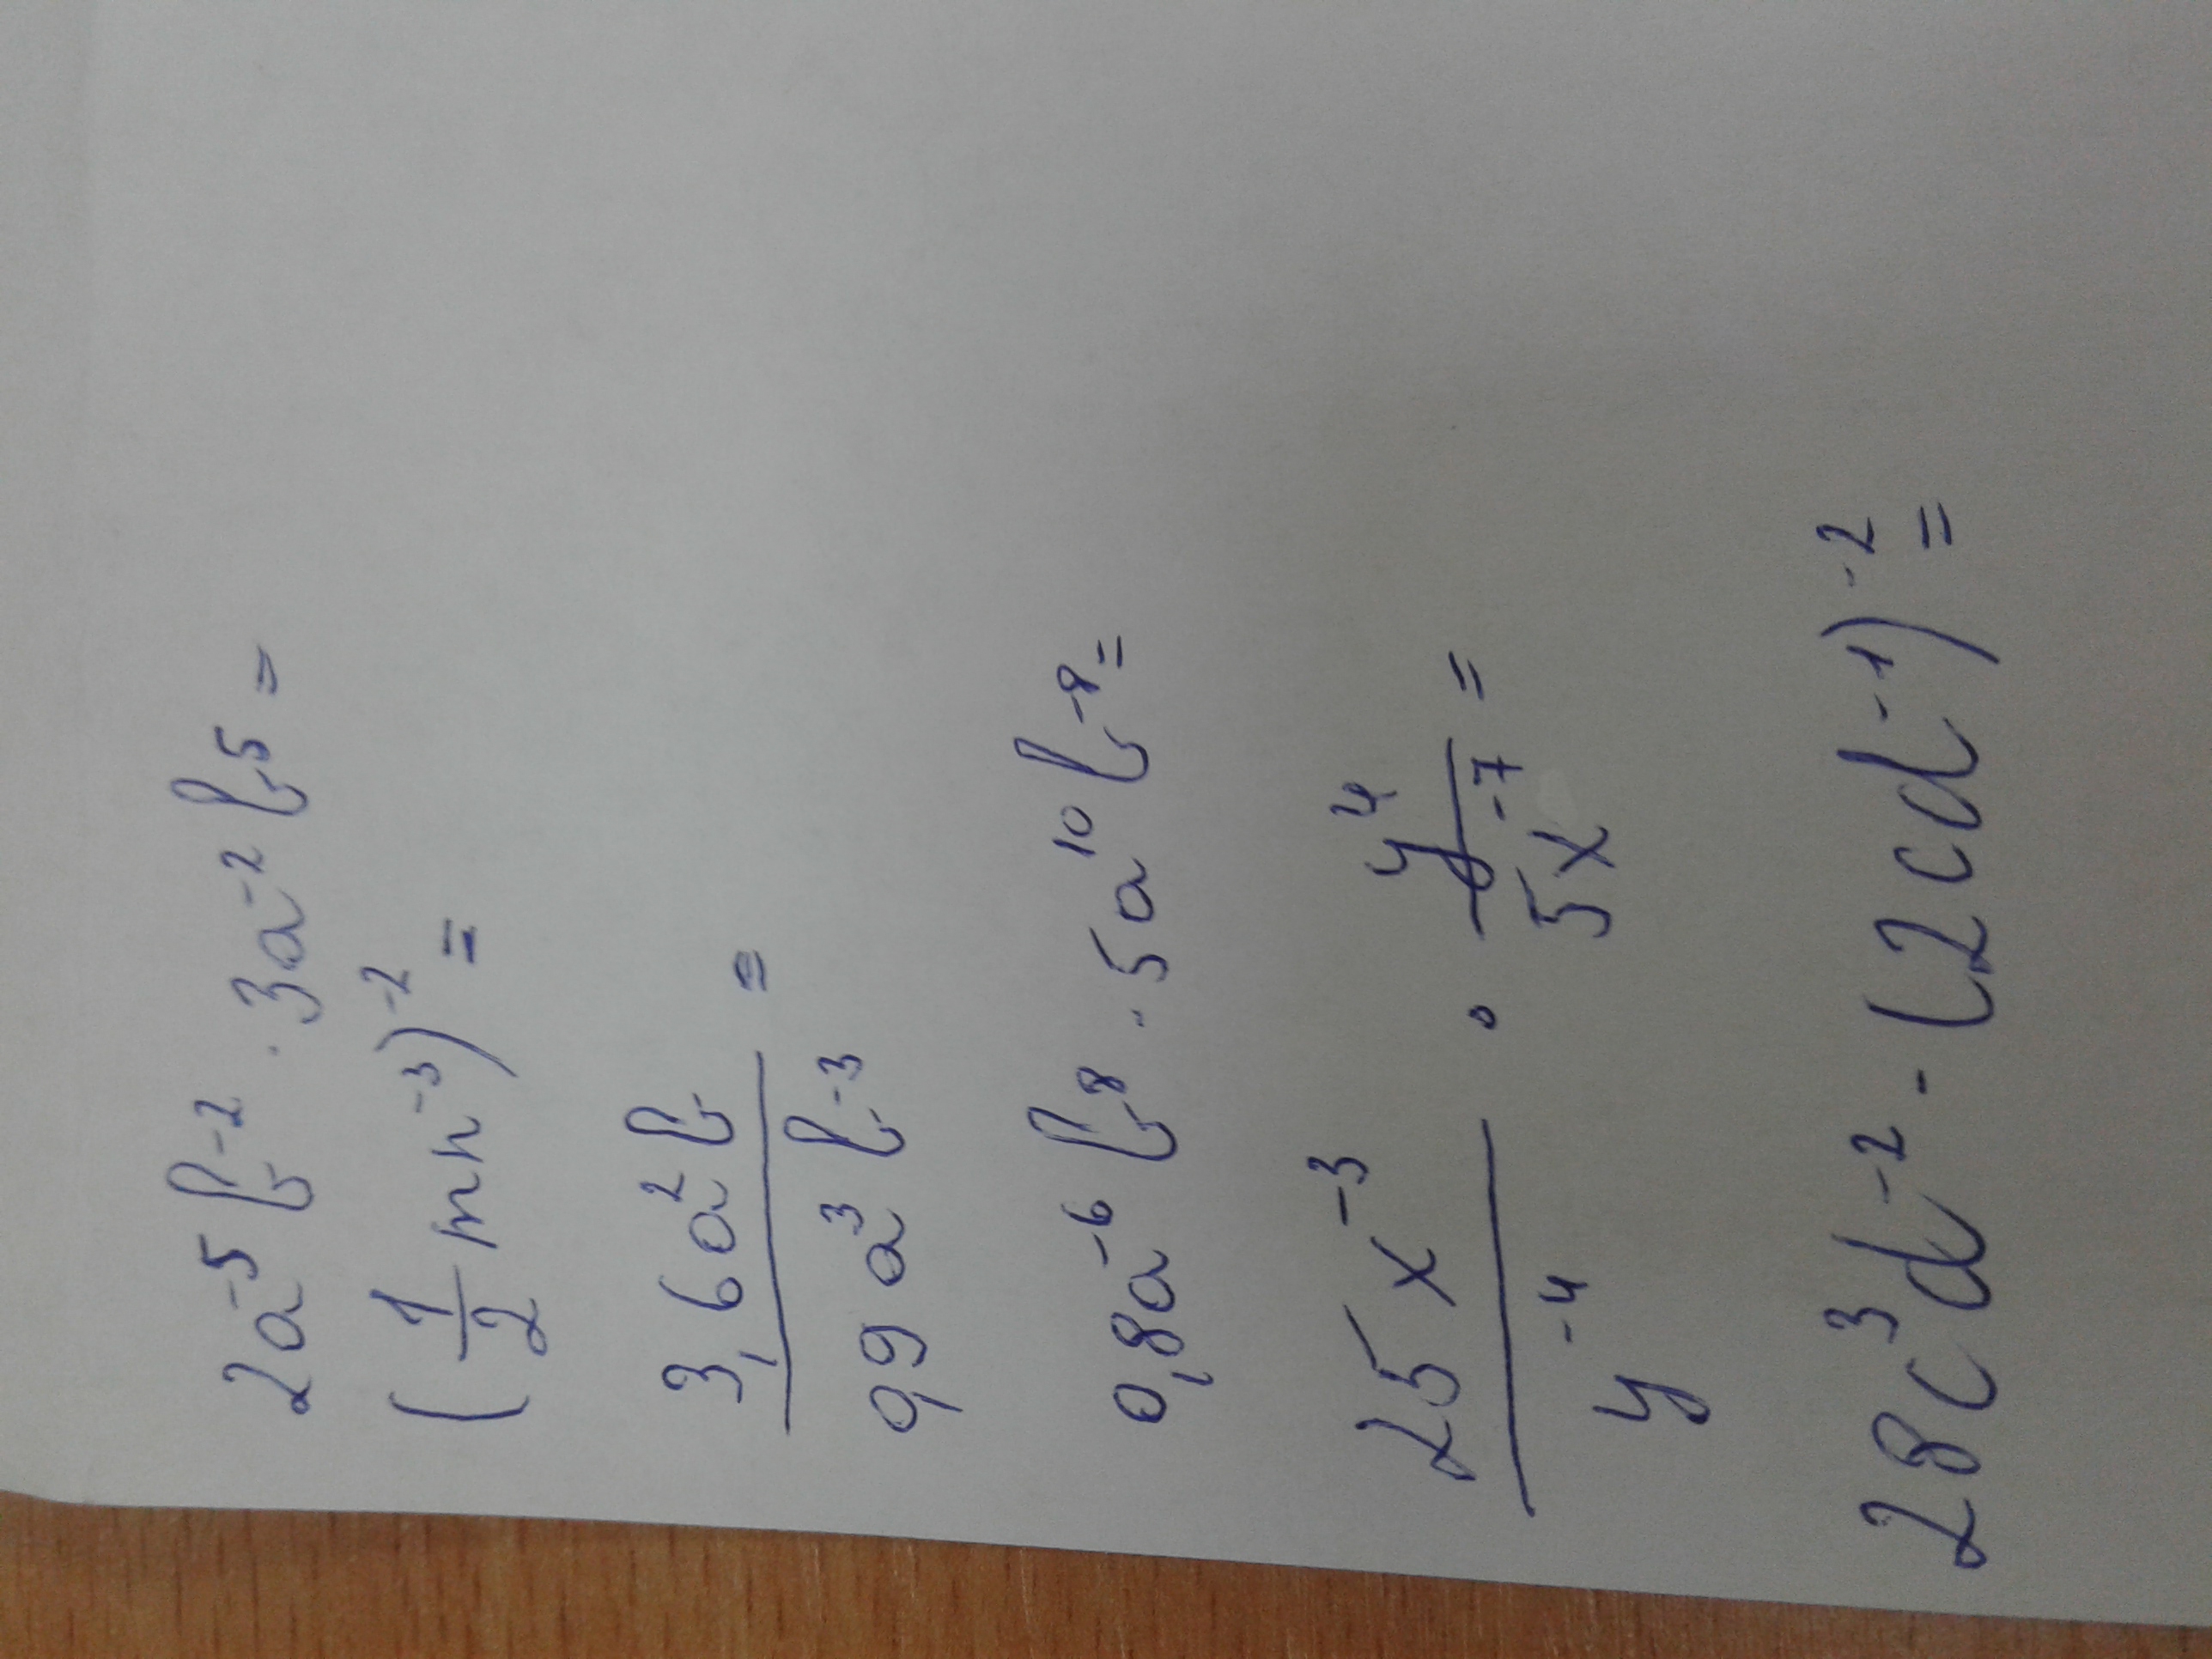 2a⁻⁵b⁻² · 3a⁻²b⁵ =
(1/2 mn⁻³)⁻² =
3,6a²b / 0,9a³b⁻³ =
0,8a⁻⁶b⁸ · 5a¹⁰b⁻⁸ =
25x⁻³ / y⁻⁴ · y⁴ / 5x⁻⁷ =
28c³d⁻² · (2cd⁻¹)⁻² =